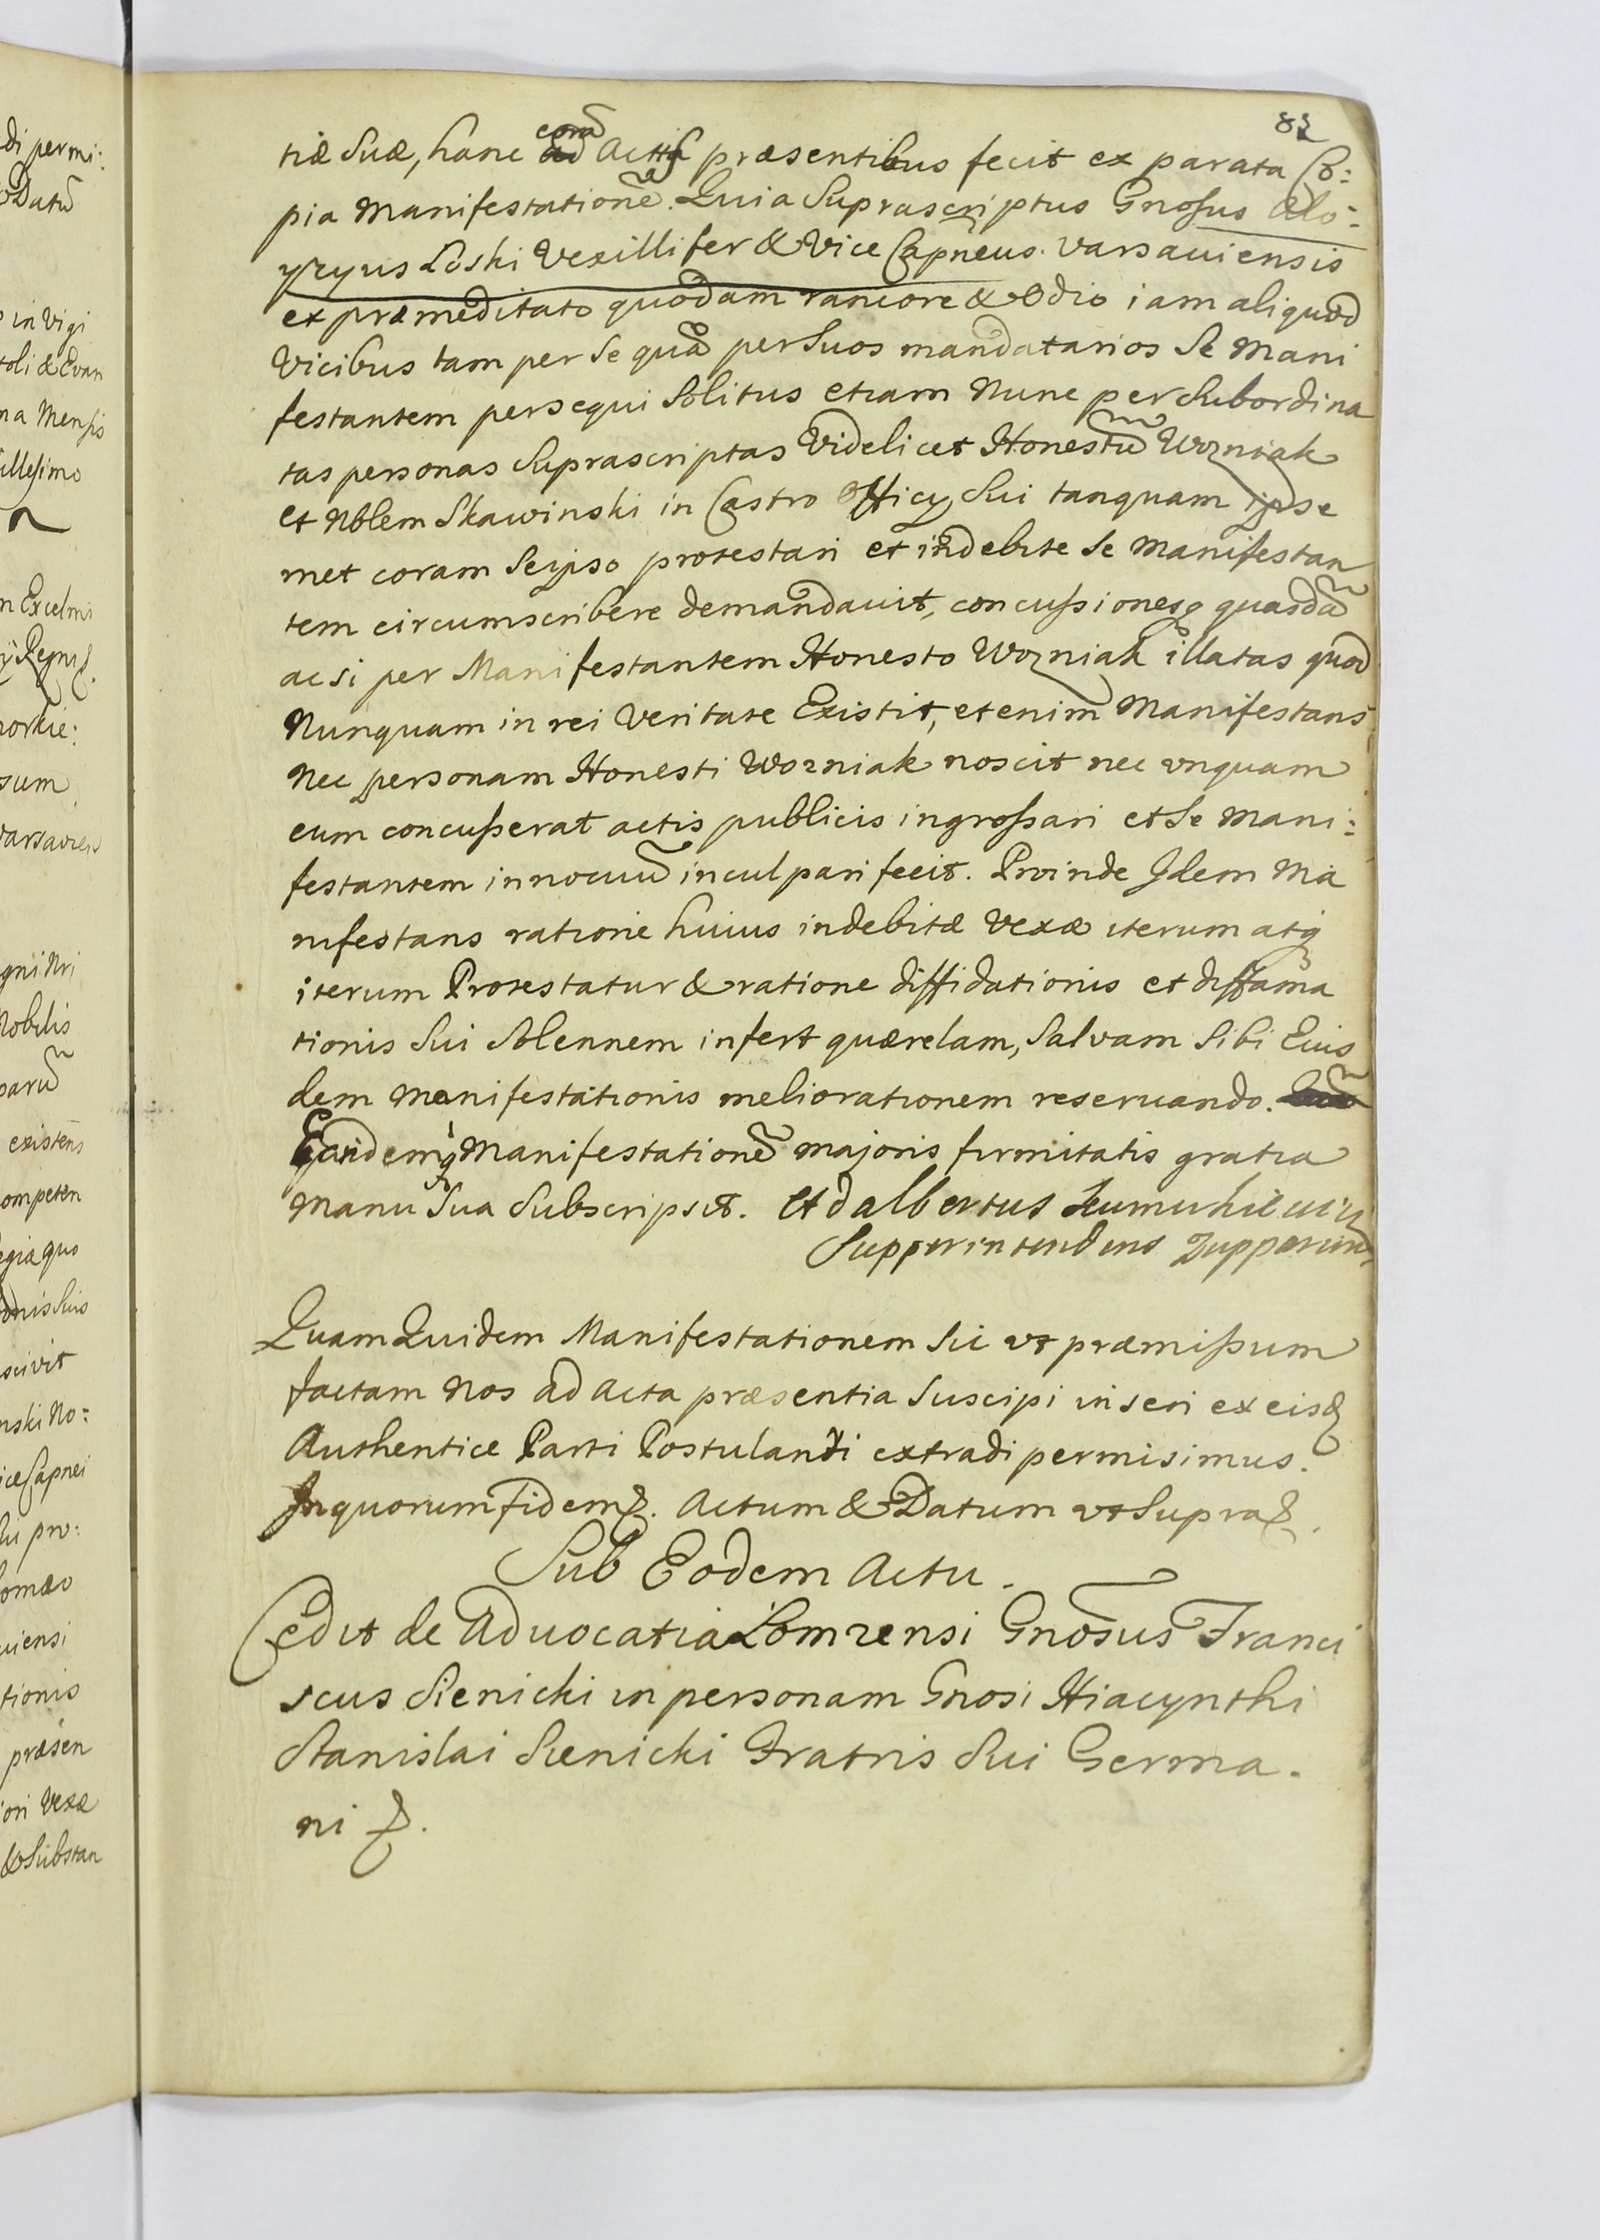 82
tiæ Suæ, hanc corā Actis præsentibus fecit ex parata Co:
pia Manifestationē. Quia Suprascriptus Gnosus Alo-
yzyus Łoski Vexillifer & Vice Capneus Varsauiensis
ex præmeditato quodam rancore & Odio iam aliquod
Vicibus tam per Se quā per Suos mandatarios Se Mani
festantem persequi Solitus etiam Nunc per Subordina
tas personas Suprascriptas Videlicet Honestū Wozniak
et Nblem Skawinski in Castro Officy Sui tanquam ipse
met coram Seipso protestari et indebite Se Manifestan
tem circumscribere demandauit, concussionesq quasdā
acsi per Manifestantem Honesto Wozniak illatas quod
Nunquam in rei Veritate Existit, etenim Manifestans
Nec personam Honesti Wozniak noscit nec vnquam
eum concusserat actis publicis ingrossari et Se Mani:
festantem innocuū inculpari fecit. Proinde Idem Ma
nifestans ratione huius indebitæ Vexæ iterum atq
iterum Protestatur & ratione diffidationis et diffama
tionis Sui Solennem infert quærelam, Salvam Sibi Eius
dem Manifestationis meliorationem reseruando.
Eandemq Manifestationē majoris firmitatis gratia
Manu Sua Subscripsit. Adalbertus
Supperintendens Zupparum
Quam Quidem Manifestationem Sic vt præmissum
factam Nos ad Acta præsentia Suscipi inseri ex eisq
Authentice Parti Postulandi extradi permisimus.
In quorum Fidem. Actum & Datum vt Supra.
Sub Eodem Actu.
Cedit de Aduocatia Łomzensi Gnosus Franci
scus Sienicki in personam Gnosi Hiacynthi
Stanislai Sienicki Fratris Sui Germa.
ni